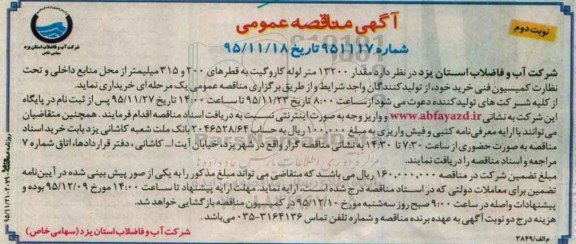 آگهی مناقصه عمومی
نوبت دوم
شماره ۹۵۱۱۱۷ تاریخ ۹۵/۱۱/۱۸
شرکت آب و فاضلاب استان یزد
سهامی خاص
شرکت آب و فاضلاب استان یزد در نظر دارد مقدار ۱۳۲۰۰ متر لوله کاروگیت به قطرهای ۲۰۰ و ۳۱۵ میلیمتر از محل منابع داخلی و تحت
نظارت کمیسیون فنی خرید خود، از تولیدکنندگان واجد شرایط و از طریق برگزاری مناقصه عمومی یک مرحله ای خریداری نماید.
از کلیه شرکت های تولیدکننده دعوت می شود از ساعت ۸:۰۰ تاریخ ۹۵/۱۱/۲۳ تا ساعت ۱۴:۰۰ تاریخ ۹۵/۱۱/۲۷ پس از ثبت نام در پایگاه
این شرکت به نشانی www.abfayazd.ir و واریز وجه به صورت اینترنتی نسبت به دریافت اسناد مناقصه اقدام فرمایند. همچنین متقاضیان
می توانند با ارایه معرفی نامه کتبی و فیش واریزی به مبلغ ۱۰۰,۰۰۰ ریال به حساب ۲۰۴۶۵۳۸/۶۴ بانک ملت شعبه کاشانی یزد بابت خرید اسناد
مناقصه به صورت حضوری از ساعت ۷:۳۰ تا ۱۴:۳۰ به نشانی مناقصه گزار واقع در شهر یزد، خیابان آیت ا... کاشانی ، دفتر قراردادها، اتاق شماره ۷
مراجعه و اسناد مناقصه را دریافت نمایند.
مبلغ تضمین شرکت در مناقصه ۱۶۰,۰۰۰,۰۰۰ ریال می باشد که متقاضی می تواند مبلغ مذکور را به یکی از صور پیش بینی شده در آیین‌نامه
تضمین برای معاملات دولتی که در اسناد مناقصه درج شده است، ارایه نماید. مهلت ارایه پیشنهادات تا ساعت ۱۴:۰۰ مورخ ۹۵/۱۲/۰۹ بوده و
پیشنهادات واصله در ساعت ۹:۰۰ صبح روز سه شنبه مورخ ۹۵/۱۲/۱۰ در کمیسیون مناقصه بازگشایی خواهد شد.
هزینه درج دو نوبت آگهی به عهده برنده مناقصه و شماره تلفن تماس ۳۱۶۴۱۳۶-۰۳۵ می باشد.
شرکت آب و فاضلاب استان یزد (سهامی خاص)
م الف/۳۸۴۹